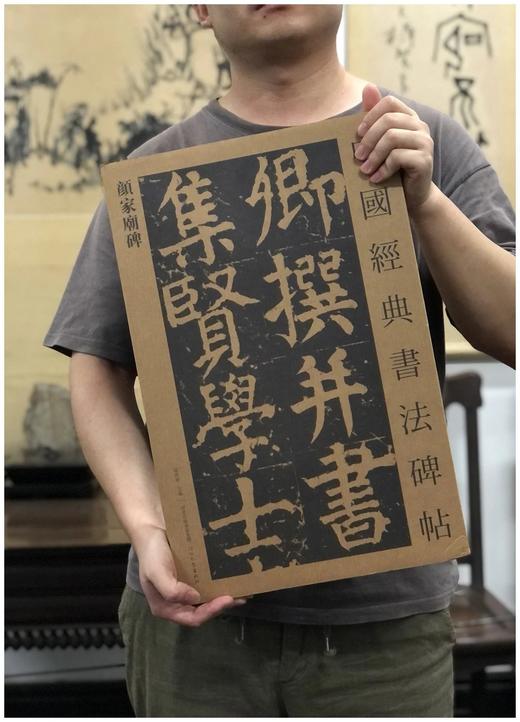 國經典書法碑帖
卿撰并書
集賢學士
顔家廟碑